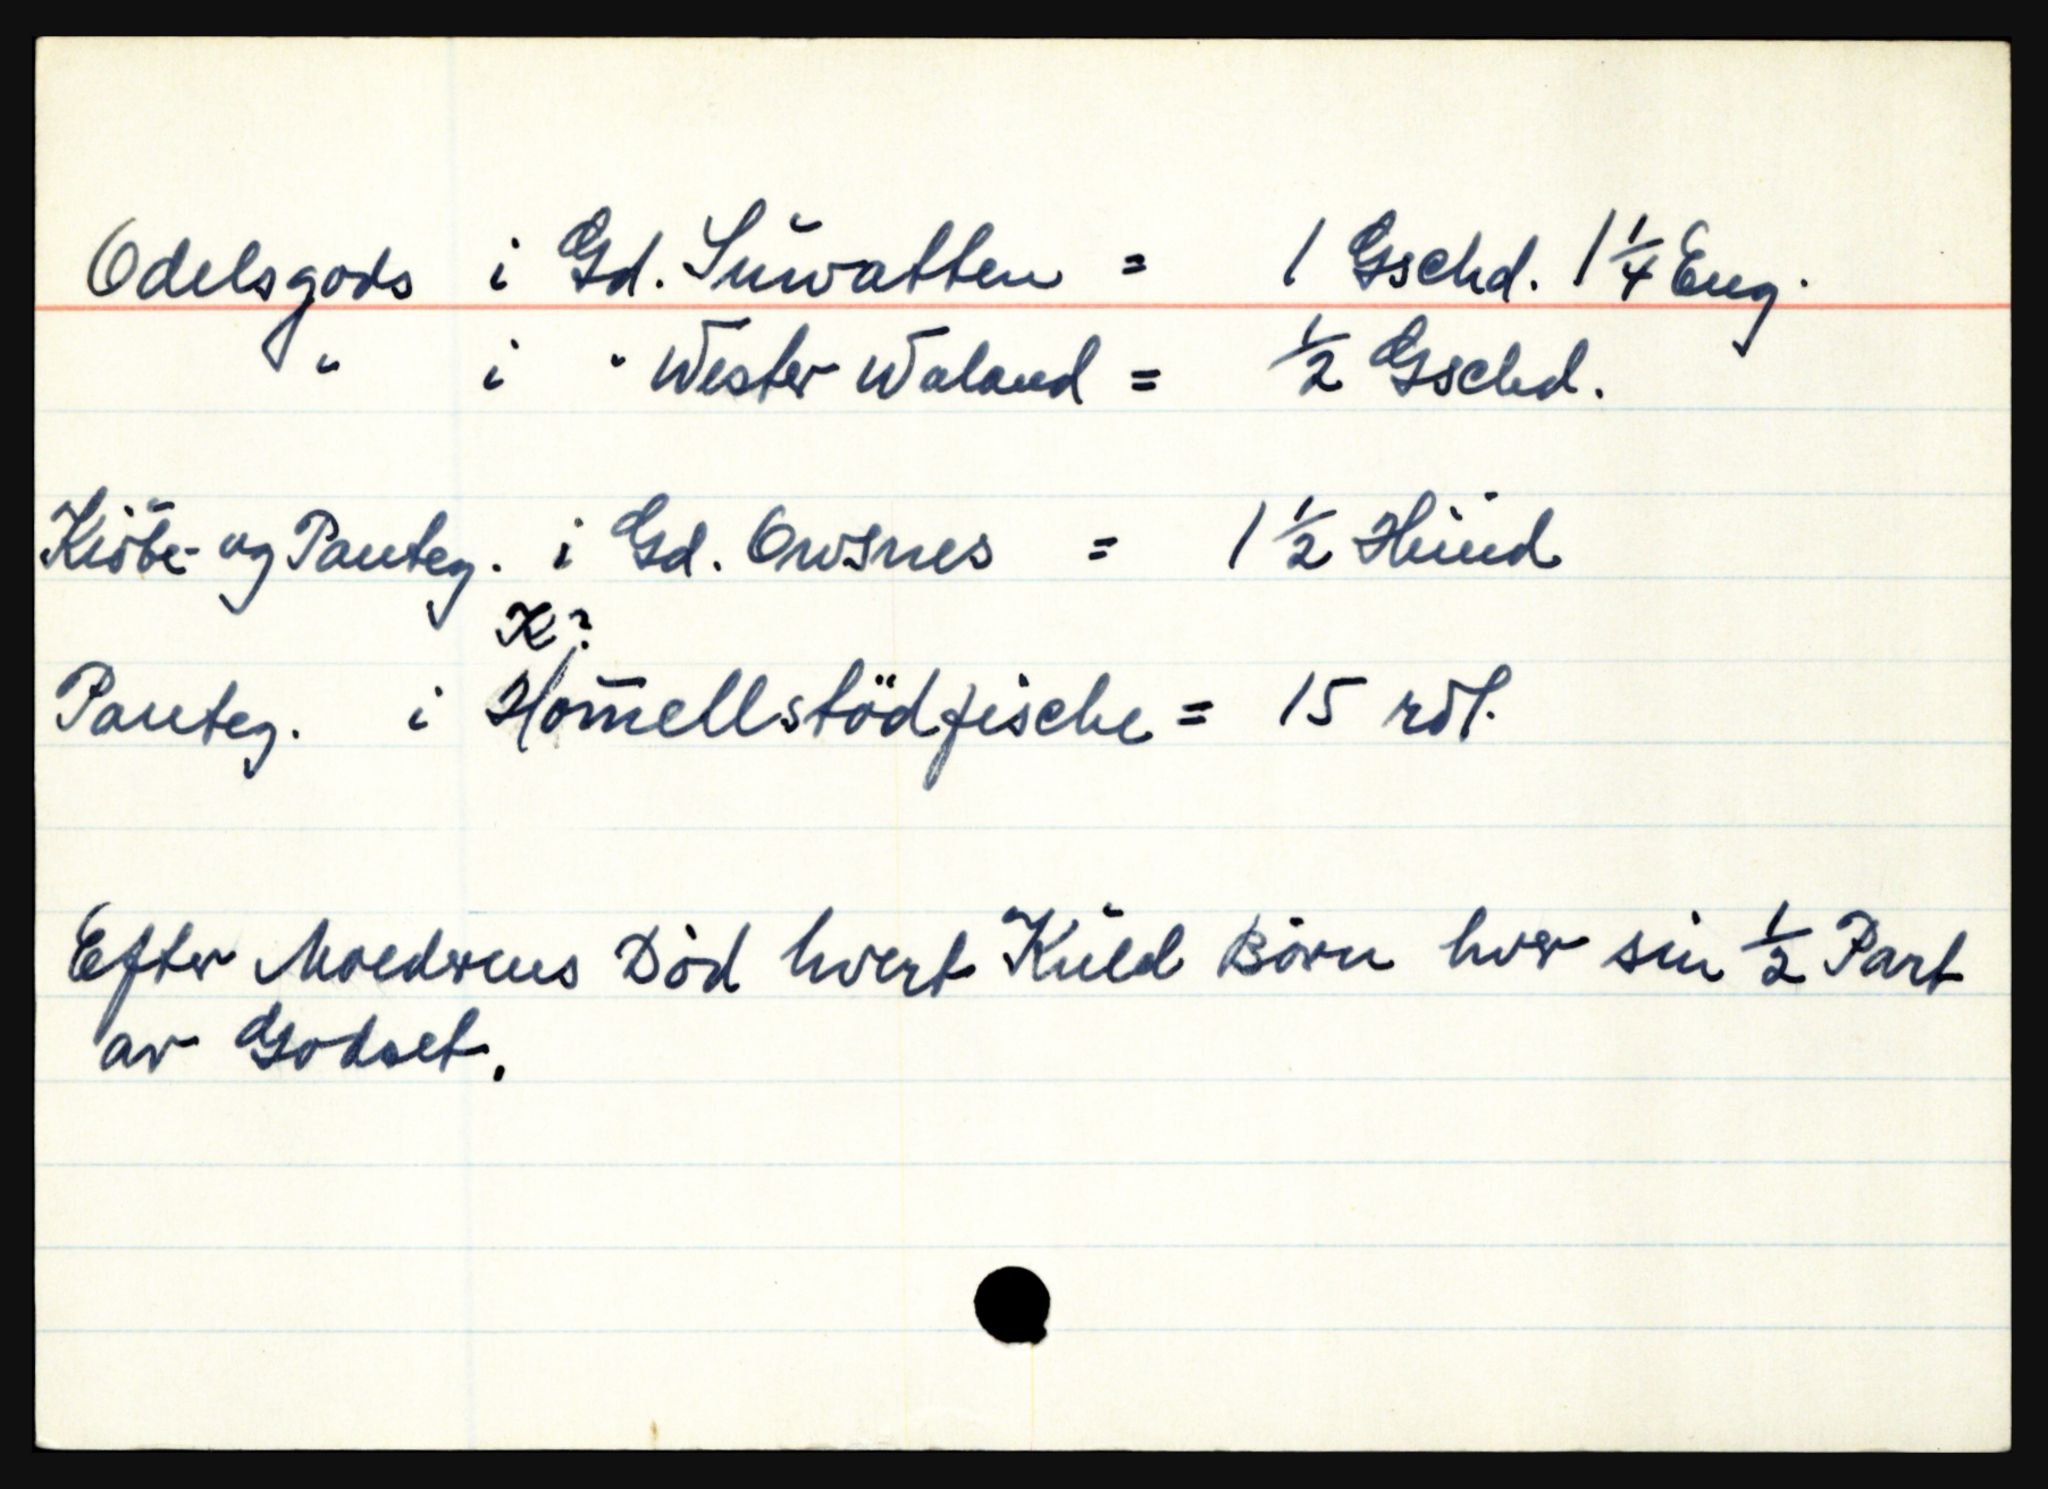 Odelsgods i Gd. Suwatten = 1 Gschd. 1 1/4 Eng.
" i " Wester Waland = 1/2 Gschd.
Kiöbe- og Panteg. i Gd. Owsnes = 1 1/2 Hüüd
K?
Panteg. i Hom̄ellstödfische = 15 rdl.
Efter Moedrens Död hvert Kuld Börn hver sin 1/2 Part
av Godset.